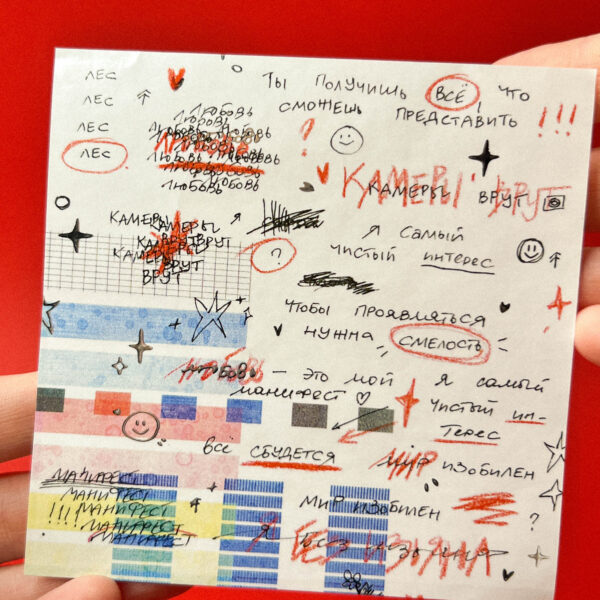 ЛЕС
ЛЕС
ЛЕС
ЛЕС
ЛЮБОВЬ
ЛЮБОВЬ
ЛЮБОВЬ ЛЮБОВЬ
ЛЮБОВЬ
ЛЮБОВЬ ЛЮБОВЬ
ЛЮБОВЬ
ЛЮБОВЬ ЛЮБОВЬ
ТЫ ПОЛУЧИШЬ ВСЁ, ЧТО
СМОЖЕШЬ ПРЕДСТАВИТЬ !!!
?
КАМЕРЫ ВРУТ
КАМЕРЫ ВРУТ
КАМЕРЫ
КАМЕРЫ
КАМЕРЫ ВРУТ
КАМЕРЫ
ВРУТ
ВРУТ
Я САМЫЙ
? ЧИСТЫЙ ИНТЕРЕС
ЧТОБЫ ПРОЯВЛЯТЬСЯ
НУЖНА СМЕЛОСТЬ
ЛЮБОВЬ – ЭТО МОЙ
МАНИФЕСТ
Я САМЫЙ
ЧИСТЫЙ ИН-
ТЕРЕС
ВСЁ СБУДЕТСЯ
МИР ИЗОБИЛЕН
МАНИФЕСТ
МАНИФЕСТ
!!! МАНИФЕСТ
МАНИФЕСТ
МАНИФЕСТ
МИР ИЗОБИЛЕН
?
Я БЕЗ ИЗЪЯНА